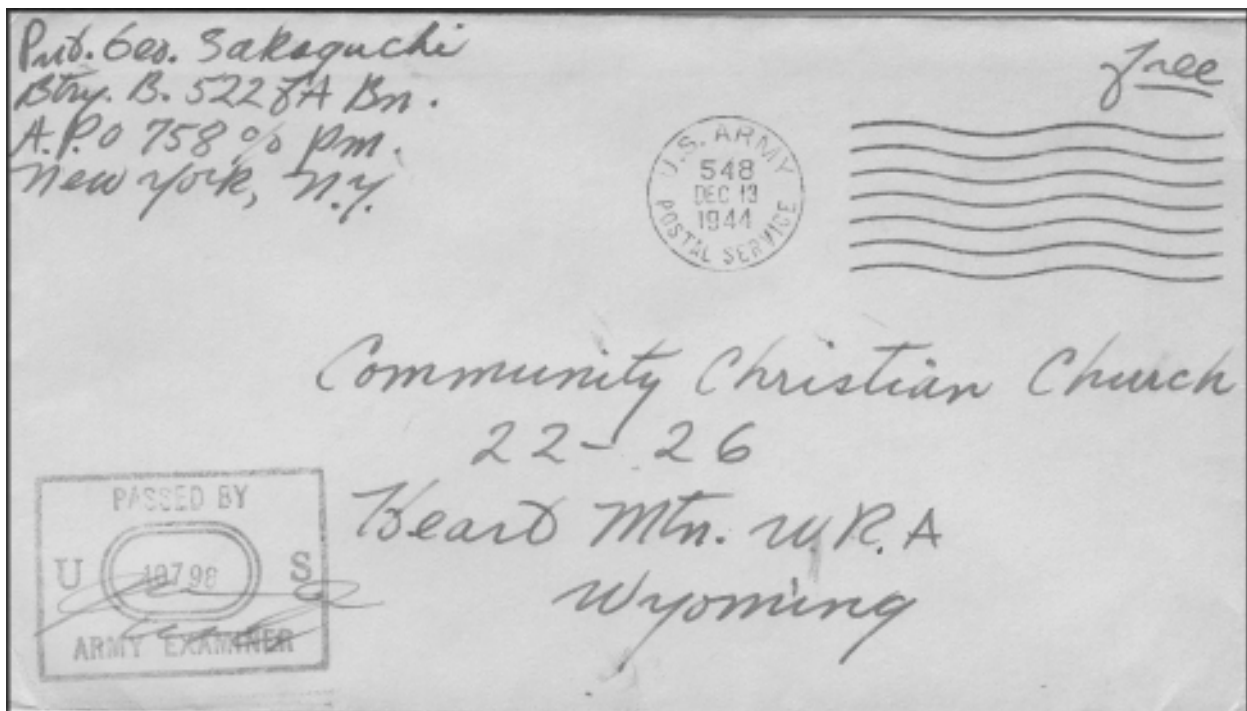 Pvt. Geo. Sakaguchi
Btry. B. 522 FA Bn.
A.P.O 758 c/o Pm.
New York, N.Y.
Free
U.S. ARMY
548
DEC 13
1944
POSTAL SERVICE
Community Christian Church
22-26
Heart Mtn. W.R.A
Wyoming
PASSED BY
U 10798 S
ARMY EXAMINER